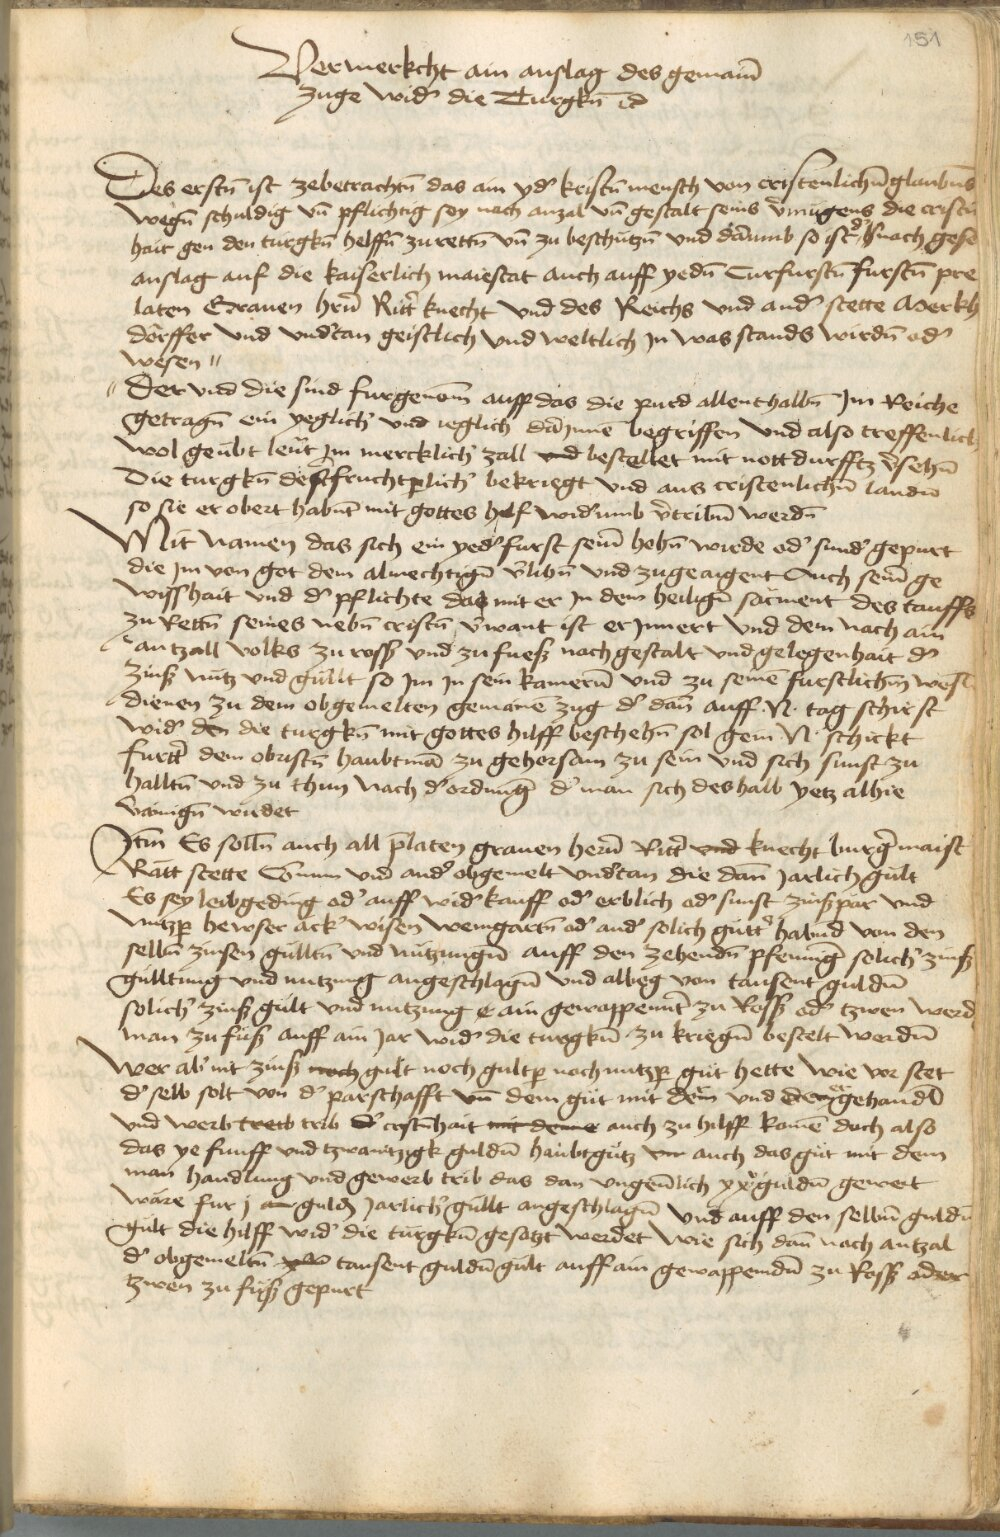 151
Vermerkcht ain anslag des gemain̄
zuge wid' die Turgkn̄ ic
Des erstn̄ ist zebetrachtn̄ das ain yd' kristn̄ mensch von cristenlichn̄ glaubn̄s
wegn̄ schuldig vn̄ pflichtig sey nach anzal vn̄ gestalt seins v'mugens die cristn̄
hait gen den turgkn̄ helffn̄ zu rettn̄ vn̄ zu beschutzn̄ und darumb so ist d' h'nach gesc
anslag auf die kaiserlich maiestat auch auff yedn̄ Curfurstn̄ furstn̄ pre
laten Grauen hrn̄ Ritt' knecht und des Reichs und and' stette Merkh
dörffer und vndtan geistlich und weltlich jn was stands wirdn̄ od'
wesen
Der und die sind furgenom̄ auff das die purd allenthalbn̄ Im Reiche
getragn̄ ein yeglich' und ieglich' darjnne begriffen und also treffenlich
wol geubt leut jm mercklich' zall und bestellet mit nottdurfftz v'sehn̄
Die turgkn̄ dest fruchtperlich' bekriegt und aus cristenlichn̄ landn̄
so sie er obert habnt mit gottes hilf wid'umb v'tribn̄ werdn̄
Mit Namen das sich ein yed' furst sein̄ hohn̄ wirde od' sund' gepurt
die jm von got dem almechtign̄ v'lihn̄ und zugeaigent Auch sein̄ ge
wisshait und d' pflichte da mit er jn dem heilign̄ sacment des tauffs
zu Rettn̄ seines nebn̄ cristn̄ v'want ist er jnnert und dem nach ain
antzall volks zu ross und zu fuess nach gestalt und gelegenhait d'
zinss nutz und gullt so jm jn sein kamern̄ und zu seinē furstlichn̄ wesn̄
dienen zu dem obgemelten gemanē zug d' dan̄ auff .N. tag schirst
wid' den die turgkn̄ mit gottes hilff beschehn̄ sol gein .N. schickt
furtt' dem obristn̄ haubtman̄ zu gehorsam zu sein und sich sunst zu
halltn̄ und zu thun nach d' ordnung d' man sich deshalb yetz alhie
v'ainign̄ wirdet
Itm̄ Es solln̄ auch all p'laten grauen hern̄ Ritt' und knecht burg'maist'
Rätt stette Com̄un und and' obgemelt undtan die dan̄ jarlich gult
Es sey leibgeding od' auff wid'kauff od' erblich od' sunst zinsspar und
nutzp' hewser ack' wisen weingartn̄ od' and' solich gutt' habnd von den
selbn̄ zinsen gulltn̄ und nutzungn̄ auff den zehendn̄ pfening solich' zinss
gulltung und nutzung angeschlagn̄ und albeg von tausent guldn̄
solich' zinss gult und nutzung ain gewappennt̄ zu Ross od' tzwen werd
man zu fuss auff ain jar wid' die turgkn̄ zu kriegn̄ bestelt werdn̄
Wer ab' nit zinss noch gult noch gultp' noch nutzp' gut hette wie vor stet
d' selb solt von d' parschafft vn̄ dem gut mit dem und er gehandl
und werb treib trib d' cristn̄hait mit deme auch zu hilff kome doch also
das ye funff und tzwantzigk guldn̄ haubtgutz auch das gut mit dem
man handlung und gewerb trib das dan ungeu'lich xxv guldn̄ gewert
wäre fur j guldn̄ jarlich' gullt angeschlagn̄ und auff den selbn̄ guldn̄
gult die hilff wid' die turgkn̄ gesatzt werdet wie sich dan̄ nach antzal
d' obgemeltn̄ tausent guldn̄ gult auff ain gewappendn̄ zu Ross oder
tzwen zu fuss gepurt